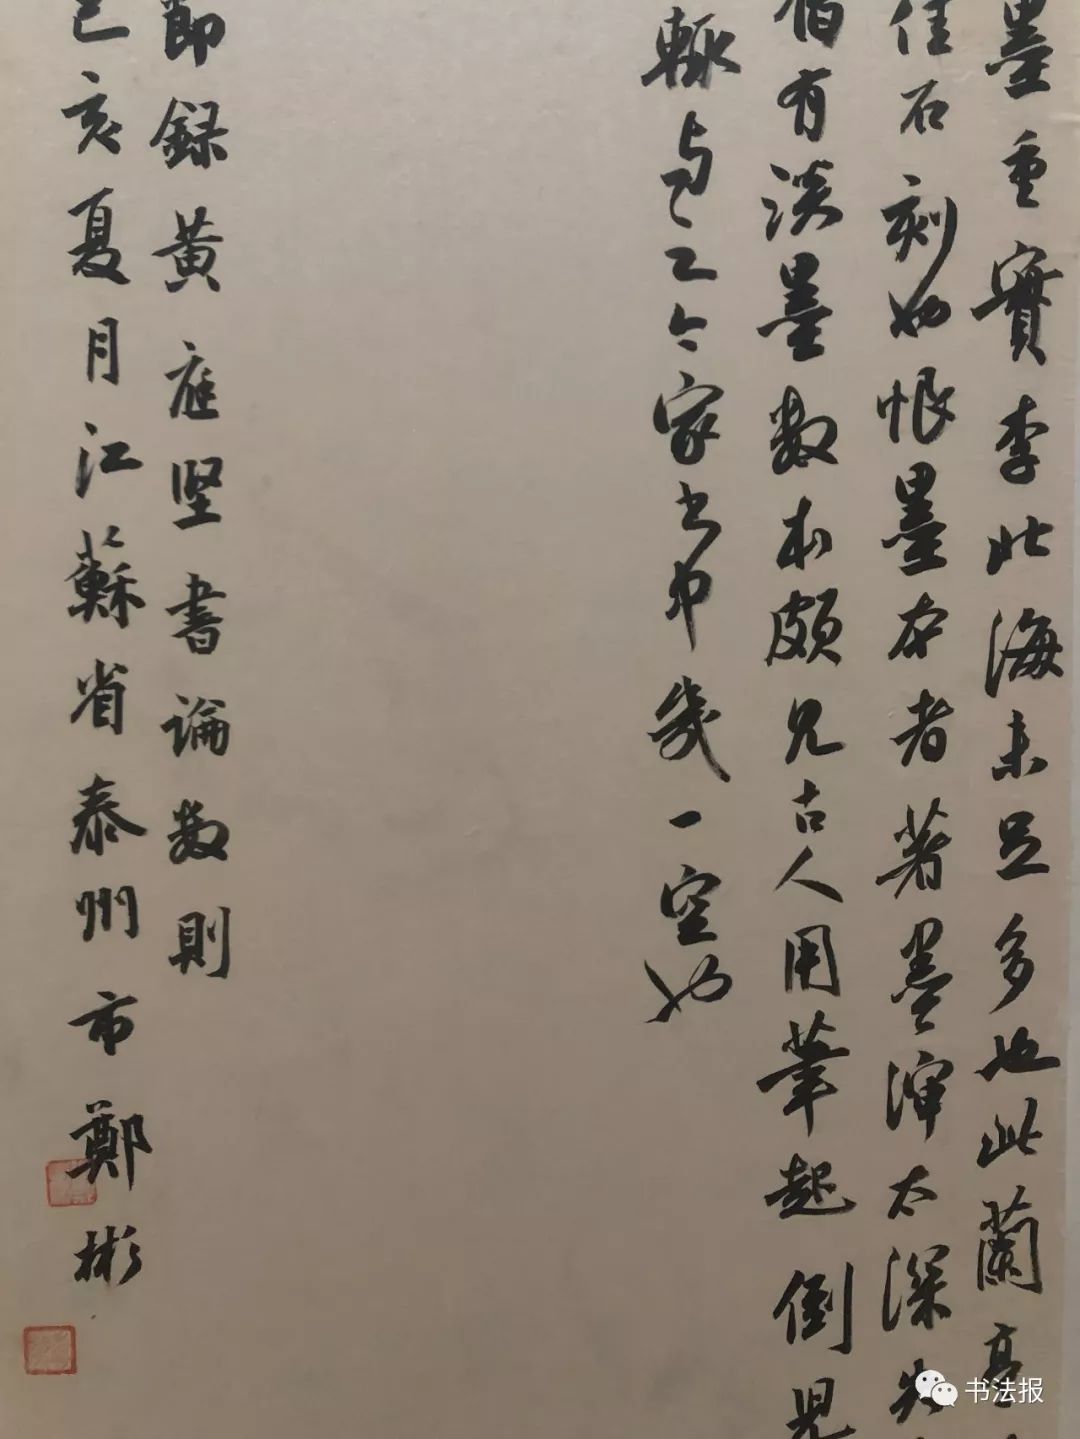 墨重實李北海未足多也此蘭亭
佳石刻也恨墨本者著墨渾太深失
有淡墨數本頗見古人用筆起倒見
輒與工令家書帋幾一空也
節録黃庭堅書論數則
己亥夏月江蘇省泰州市鄭彬
书法报